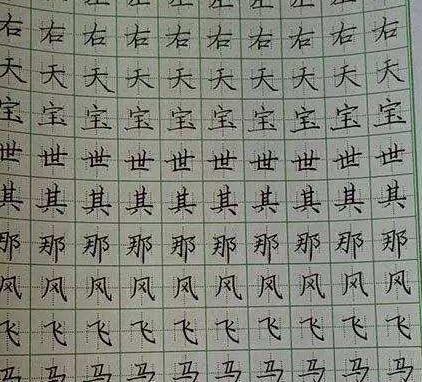 右右右右右右右右右右
天天天天天天天天天天
宝宝宝宝宝宝宝宝宝宝
世世世世世世世世世世
其其其其其其其其其其
那那那那那那那那那那
风风风风风风风风风风
飞飞飞飞飞飞飞飞飞飞
马马马马马马马马马马